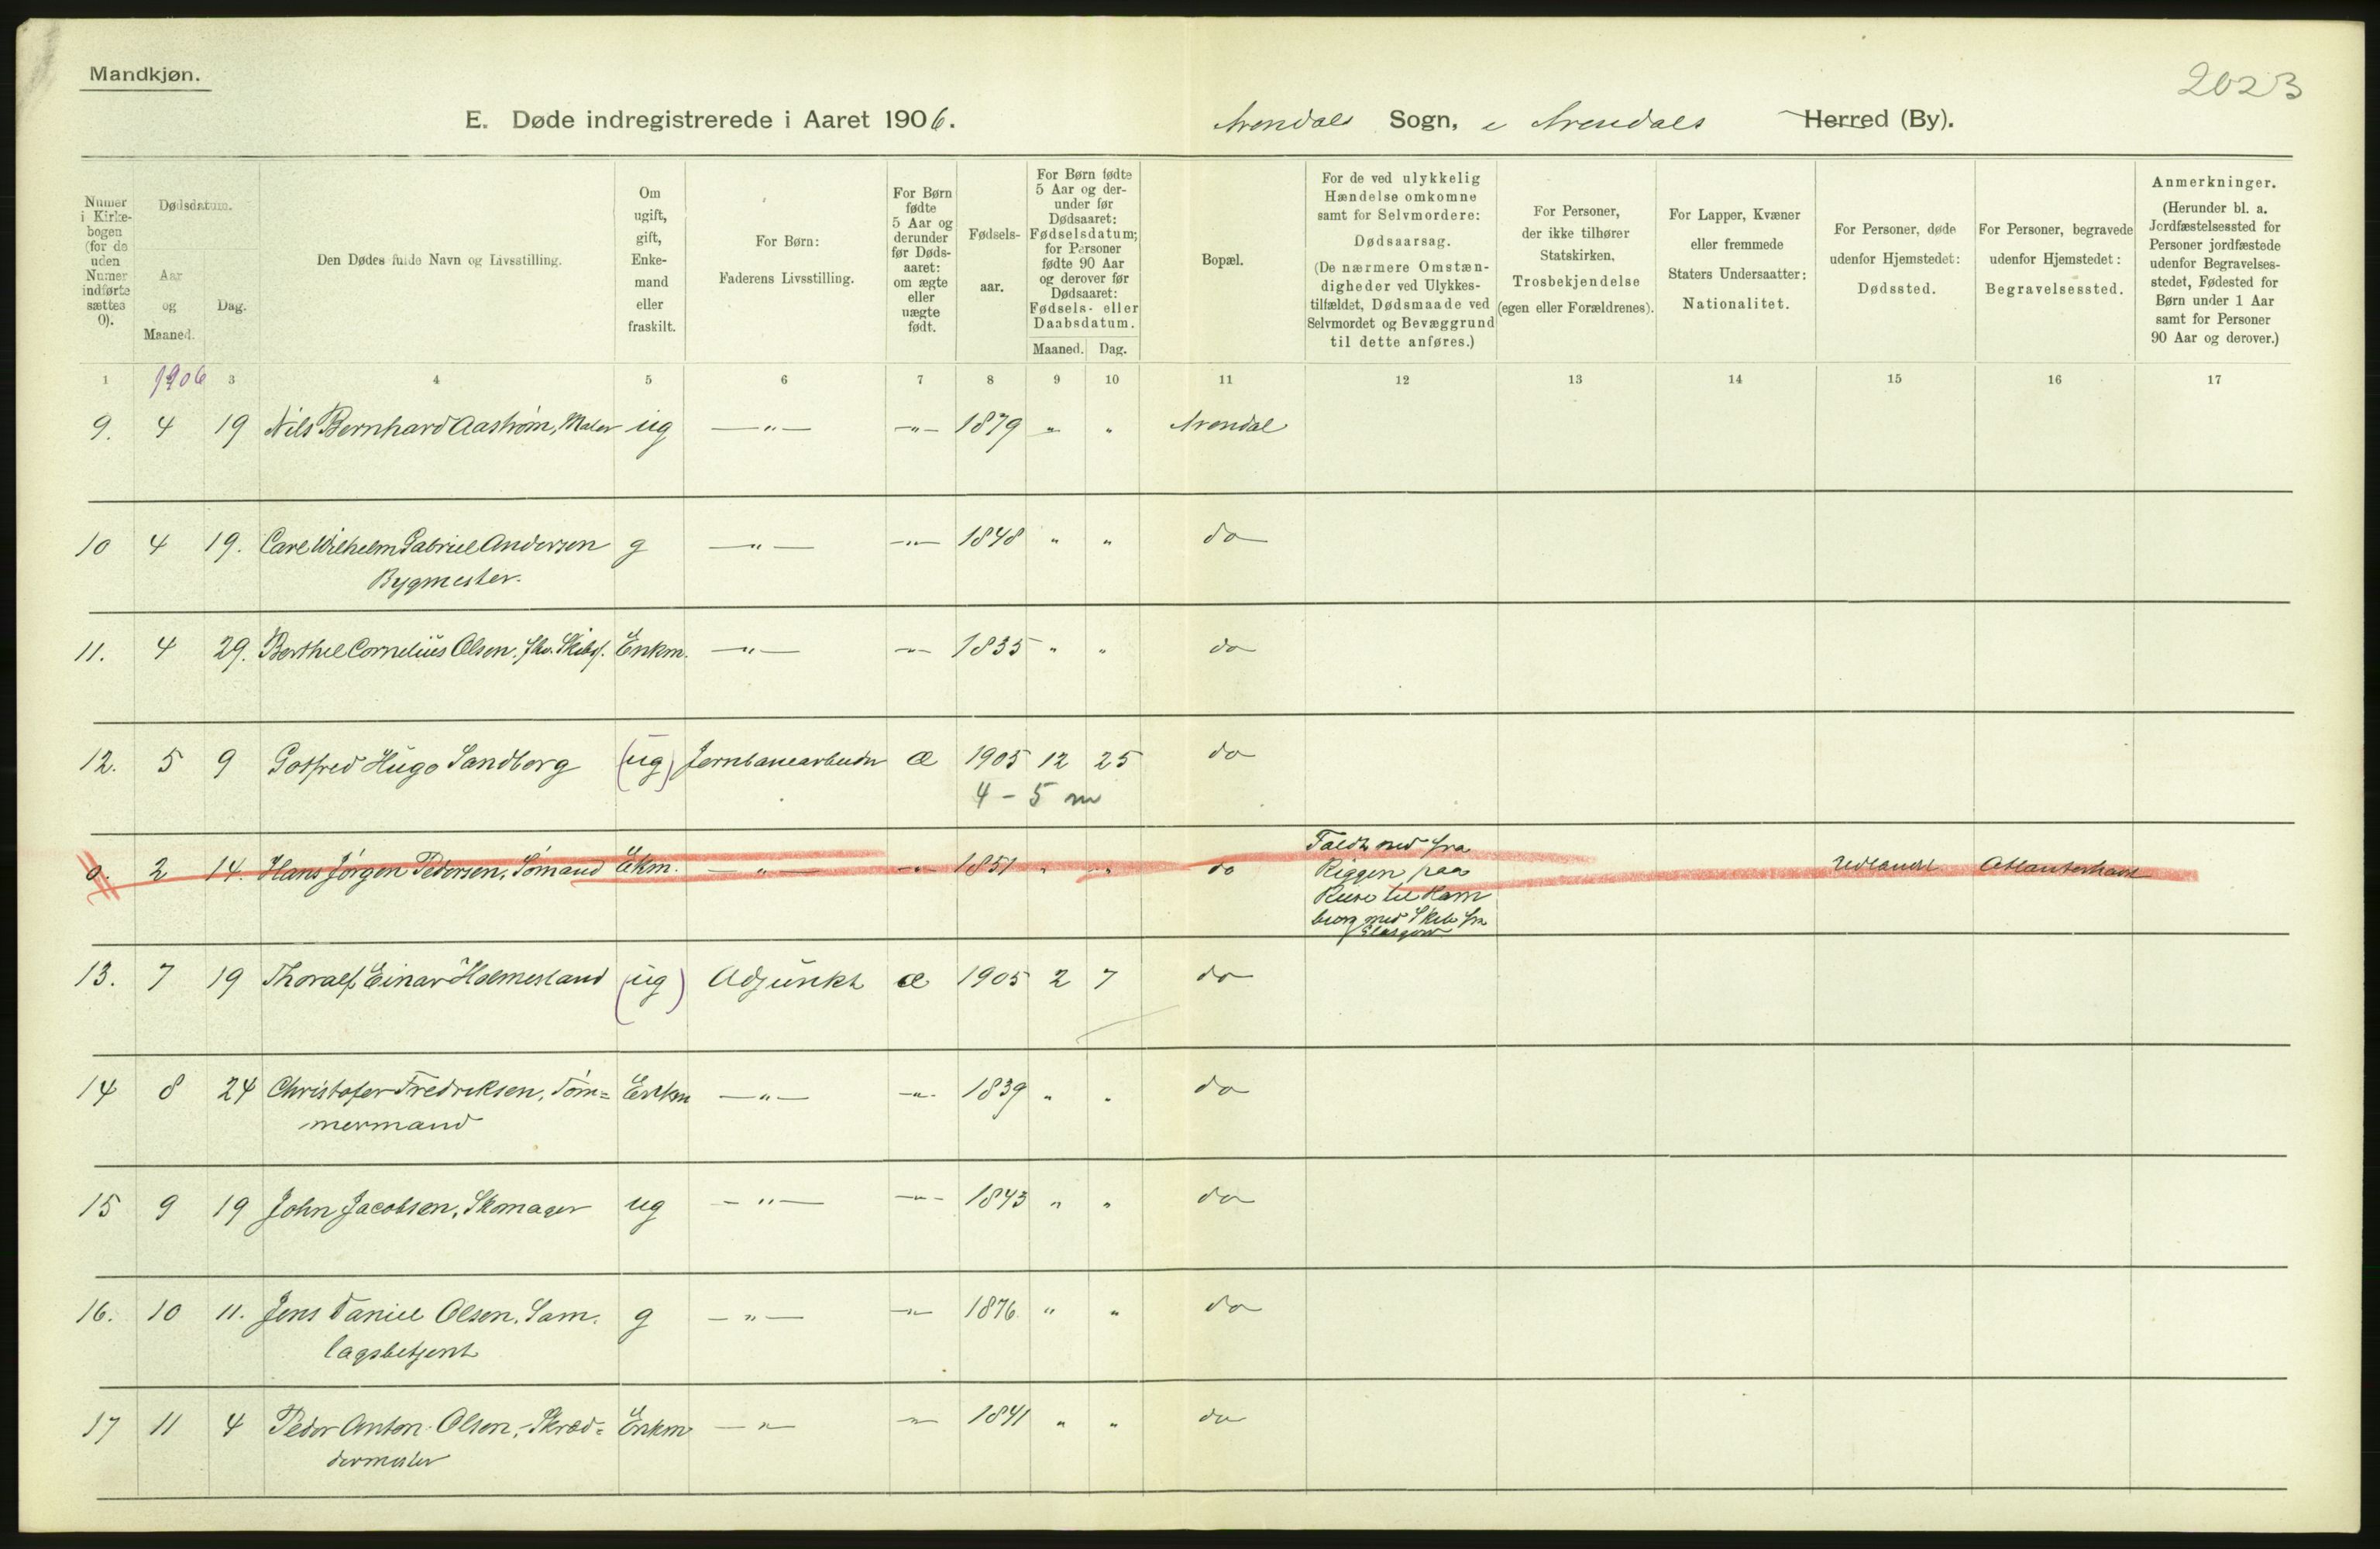 Mandkjøn.
2023
E. Døde indregistrerede i Aaret 1906.
Arendals Sogn, i Arendals Herred (By).
Numer i Kirkebogen (for de uden Numer indførte sættes 0).
Dødsdatum.
Aar og Maaned.
Dag.
Den Dødes fulde Navn og Livsstilling.
Om ugift, gift, Enkemand eller fraskilt.
For Børn: Faderens Livsstilling.
For Børn fødte 5 Aar og derunder før Dødsaaret: om ægte eller uægte født.
Fødselsaar.
For Børn fødte 5 Aar og derunder før Dødsaaret: Fødselsdatum; for Personer fødte 90 Aar og derover før Dødsaaret: Fødsels- eller Daabsdatum.
Maaned. Dag.
Bopæl.
For de ved ulykkelig Hændelse omkomne samt for Selvmordere: Dødsaarsag. (De nærmere Omstændigheder ved Ulykkestilfældet, Dødsmaade ved Selvmordet og Bevæggrund til dette anføres.)
For Personer, der ikke tilhører Statskirken, Trosbekjendelse (egen eller Forældrenes).
For Lapper, Kvæner eller fremmede Staters Undersaatter: Nationalitet.
For Personer, døde udenfor Hjemstedet: Dødssted.
For Personer, begravede udenfor Hjemstedet: Begravelsessted.
Anmerkninger. (Herunder bl. a. Jordfæstelsessted for Personer jordfæstede udenfor Begravelsesstedet, Fødested for Børn under 1 Aar samt for Personer 90 Aar og derover.)
1 1906 3 4 5 6 7 8 9 10 11 12 13 14 15 16 17
9. 4 19 Nils Bernhard Aastrøm, Maler ug —"— —"— 1879 " " Arendal
10 4 19. Carl Wilhelm Gabriel Andersen g —"— —"— 1848 " " do
Bygmester.
11. 4 29. Berthel Cornelius Olsen, fhv. Skibsf. Enkm. —"— —"— 1835 " " do
12. 5 9 Gotfred Hugo Sandberg (ug) Jernbanearbeider æ 1905 12 25 do
4 - 5 m
0. 2 14. Hans Jørgen Pedersen, Sømand Ekm. —"— —"— 1851 " " do Faldt ned fra Udlandet Atlanterhavet
Riggen paa
Reise til Ham
burg med Skib fra
Glasgow
13. 7 19 Thoralf Einar Holmesland (ug) Adjunkt æ 1905 2 7 do
14 8 24 Christofer Fredriksen, Tøm= Enkm —"— —"— 1839 " " do
mermand
15 9 19 John Jacobsen, Skomager ug —"— —"— 1843 " " do
16. 10 11. Jens Daniel Olsen, Sam. g —"— —"— 1876 " " do
lagsbetjent
17 11 4 Peder Anton Olsen, Skræd= Enkm —"— —"— 1841 " " do
dermester